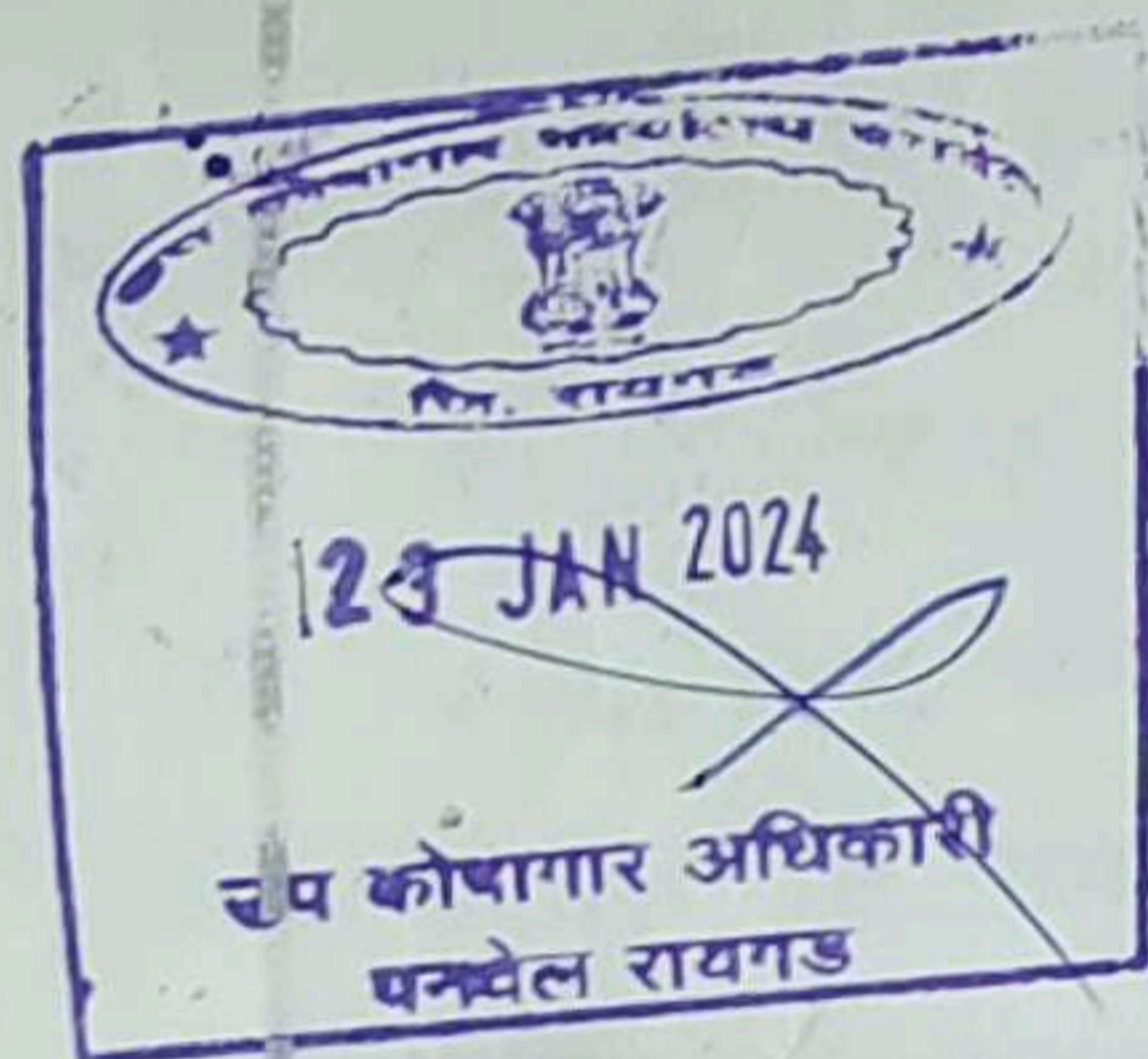 जि. रायगड
23 JAN 2024
उप कोषागार अधिकारी
पनवेल रायगड